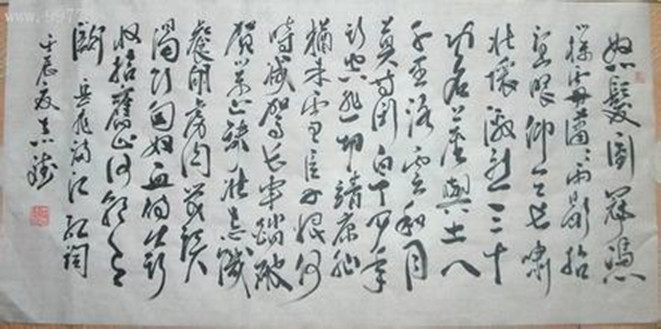 怒髮衝冠憑
欄處瀟瀟雨歇抬
望眼仰天長嘯
壯懷激烈三十
功名塵與土八
千里路雲和月
莫等閒白了少年
頭空悲切靖康恥
猶未雪臣子恨何
時滅駕長車踏破
賀蘭山缺壯志飢
餐胡虜肉笑談
渴飲匈奴血待從頭
收拾舊山河朝天
闕 岳飛滿江紅詞
壬辰夏志
www.9977